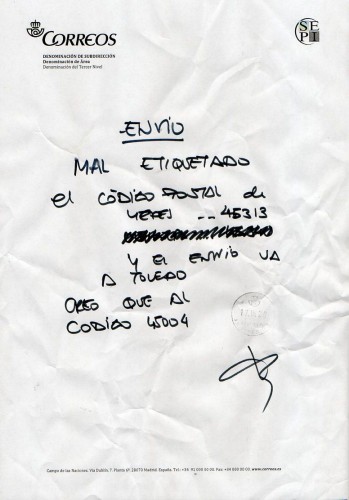 CORREOS
SEPI
DENOMINACIÓN DE SUBDIRECCIÓN
Denominación de Área
Denominación del Tercer Nivel
ENVIO
MAL ETIQUETADO
el CÓDIGO POSTAL de
YEPES -- 45313
Y El ENVIO VA
A TOLEDO
CREO QUE AL
CODIGO 45004
Campo de las Naciones. Vía Dublín, 7. Planta 6ª. 28070 Madrid-España. Tel.: +34 91 000 00 00. Fax: +34 000 00 00. www.correos.es